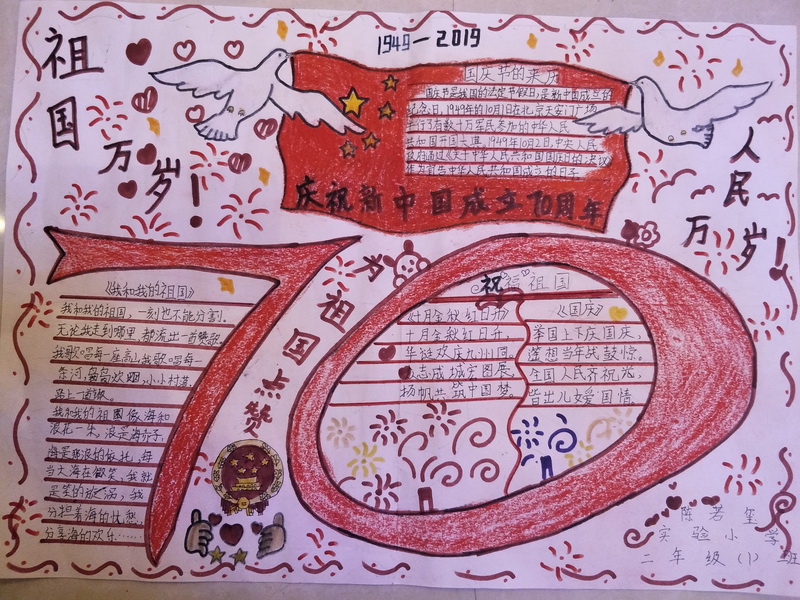 1949—2019
祖国万岁!
国庆节的来庆
国庆节是我国的法定节假日,是新中国成立的
纪念日。1949年的10月1日在北京天安门广场
举行了有数十万军民参加的中华人民
共和国开国大典。1949年10月2日,中央人民
政府通过《关于中华人民共和国国庆日的决议
作为宣告中华人民共和国成立的日子
庆祝新中国成立70周年
人民万岁!
70
为祖国点赞
《我和我的祖国》
我和我的祖国,一刻也不能分割。
无论我走到哪里,都流出一首赞歌
我歌唱每一座高山我歌唱每一
条河,袅袅炊烟,小小村落,
路上一道辙。
我和我的祖国像海和
浪花一朵,浪是海赤子,
海是那浪的依托,每
当大海在微笑,我就
是笑的旋涡,我
分担着海的忧愁,
分享海的欢乐……
祝福祖国
《十月金秋红日升》
十月金秋红日升,
华诞欢庆九州同。
众志成城宏图展,
扬帆共筑中国梦。
《国庆》
举国上下庆国庆,
遥想当年战鼓惊。
全国人民齐祝兴,
皆出儿女爱国情。
陈若玺
实验小学
二年级(1)班